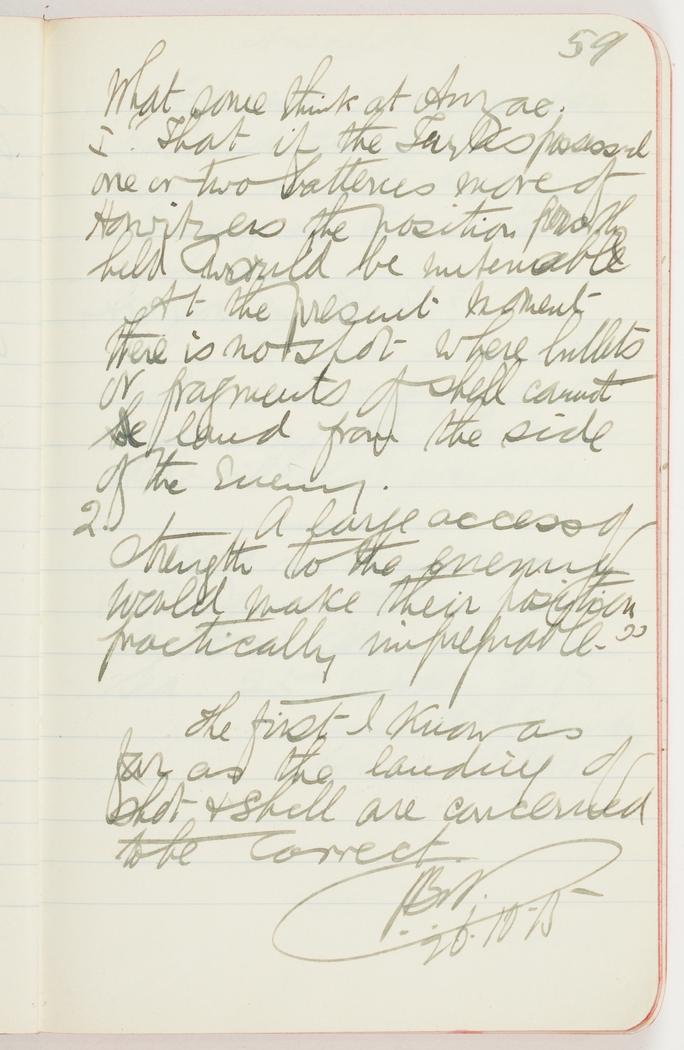 59
What some think at Anzac.
1. "That if the Turks possessed
one or two batteries more of
Howitzers the position
held would be untenable
At the present moment
there is no spot where bullets
or fragments of shell cannot
be land from the side
of the Enemy.
2. A large access of
strength to the enemy
would make their position
practically impregnable."
The first I know as
far as the landing of
shot & shell are concerned
to be correct.
26.10.15